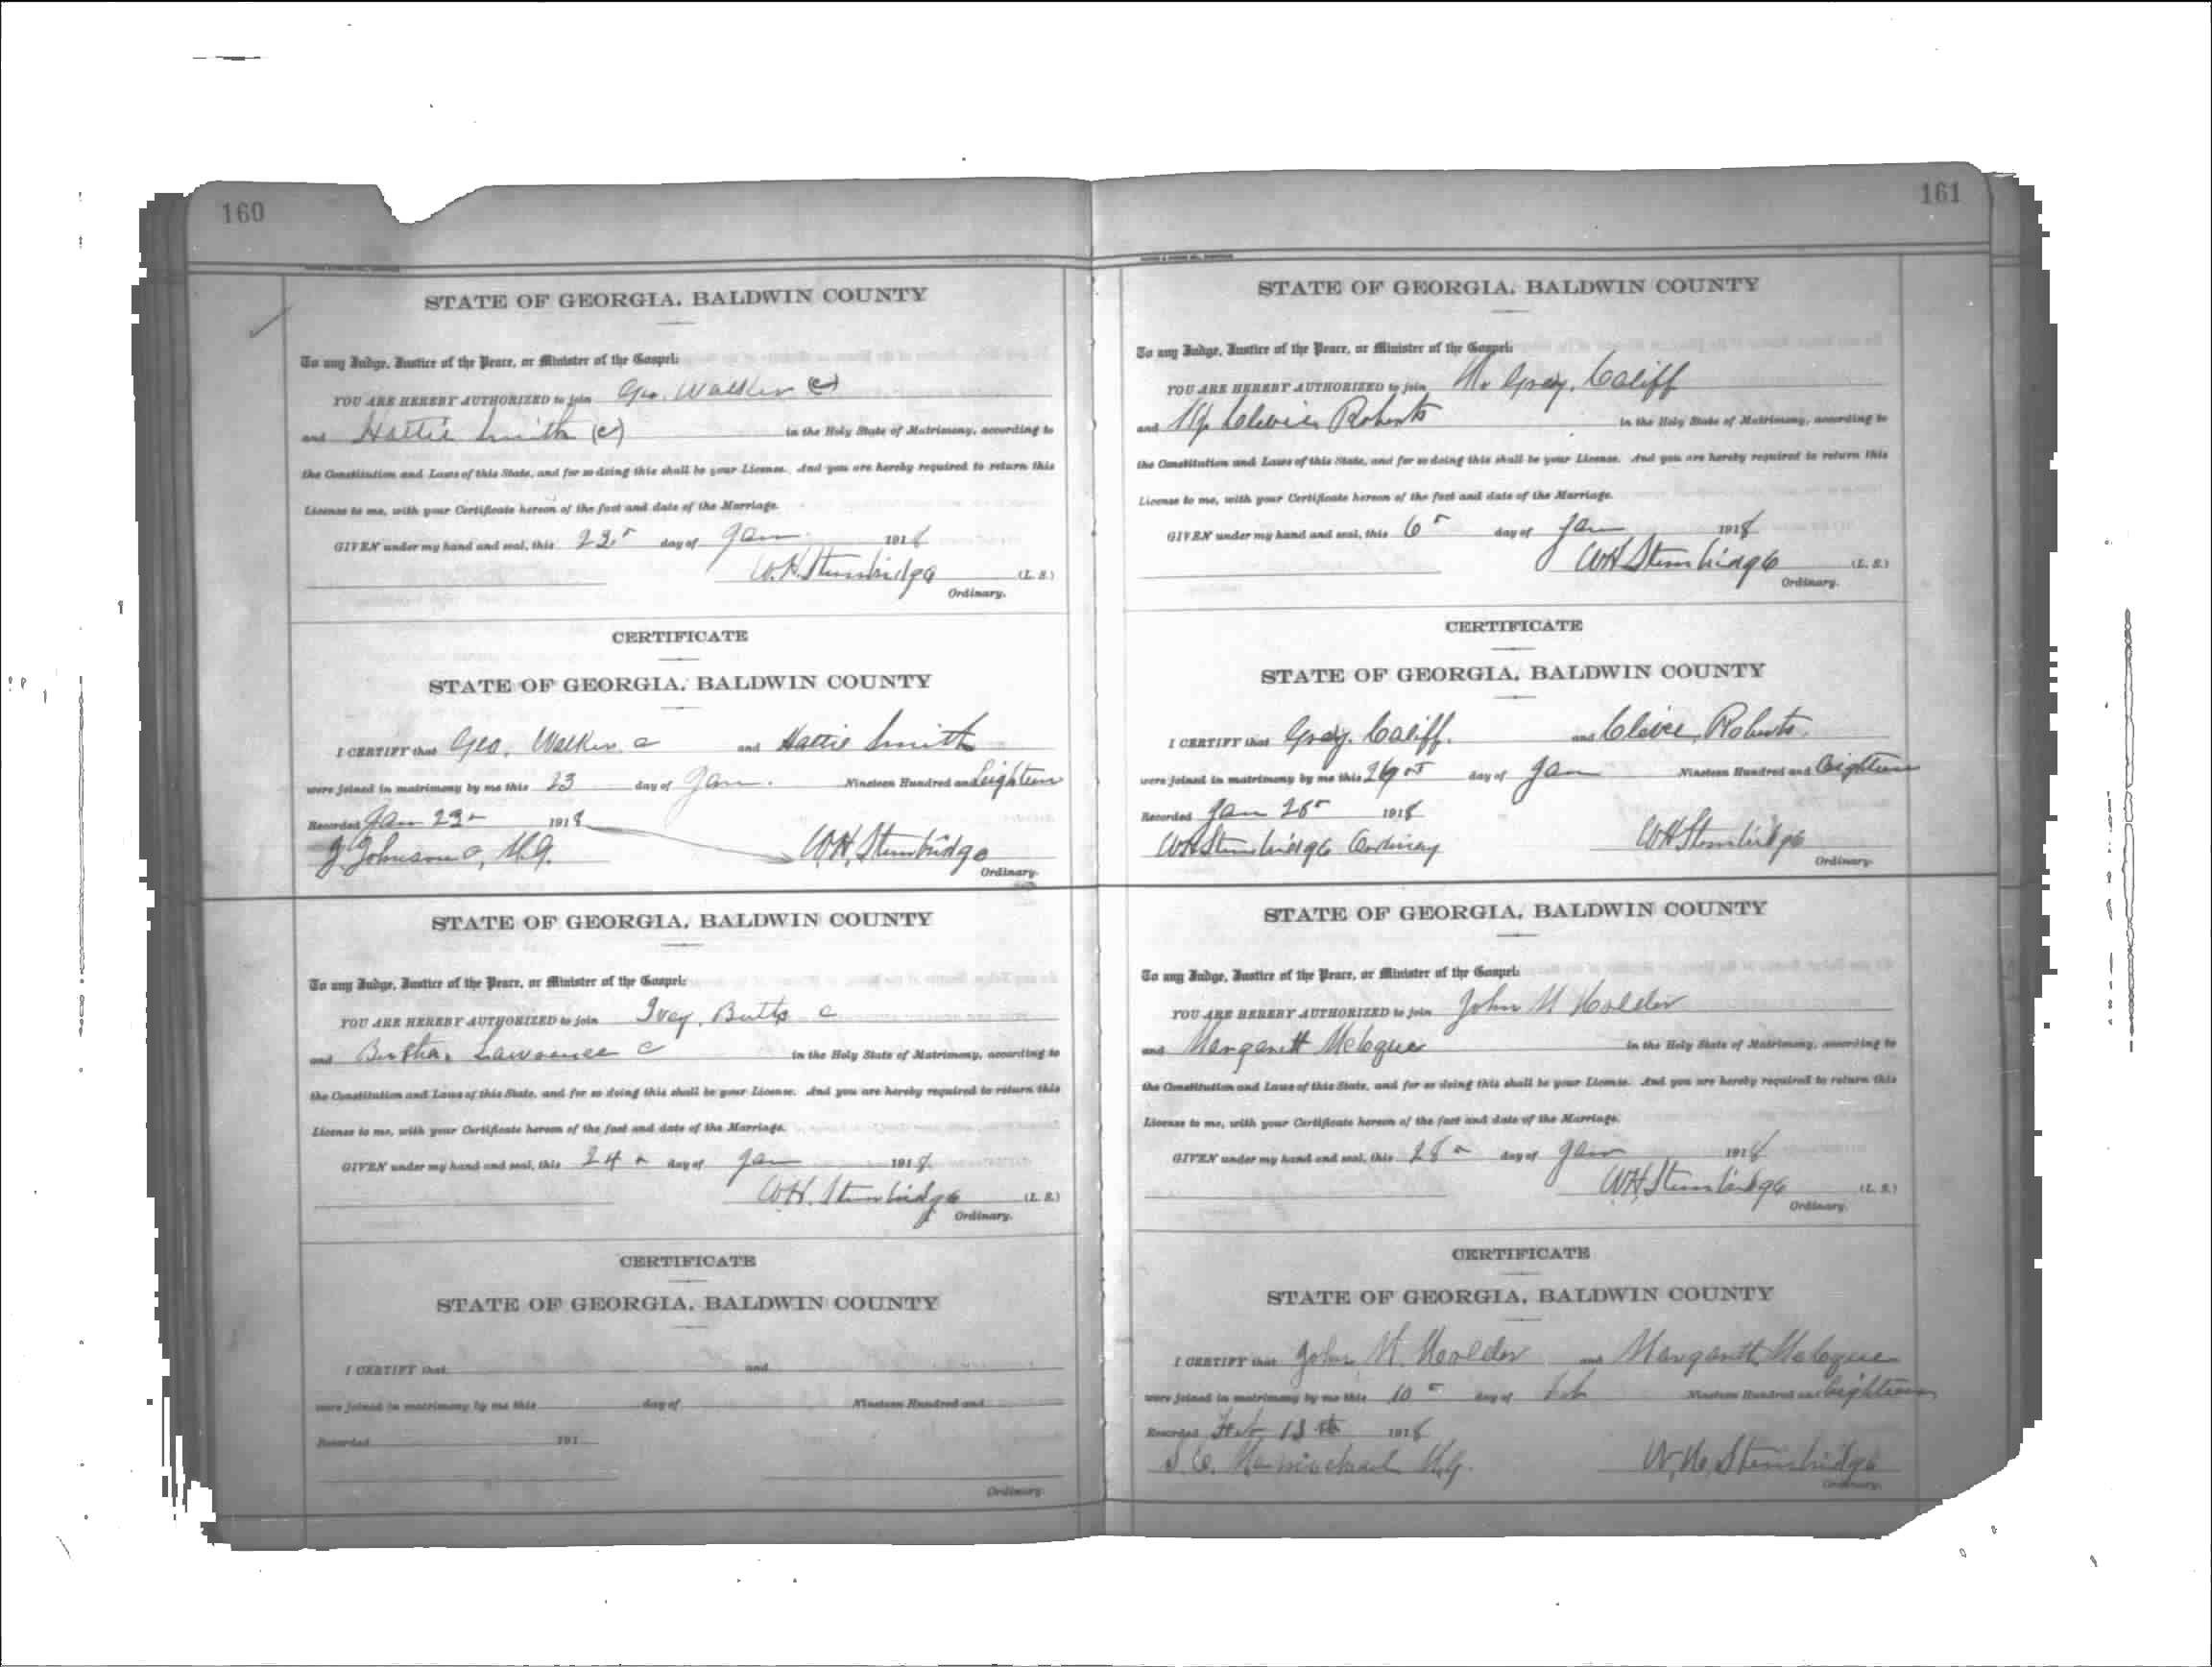 160
STATE OF GEORGIA, BALDWIN COUNTY
To any Judge, Justice of the Peace, or Minister of the Gospel:
YOU ARE HEREBY AUTHORIZED to join Geo. Walker (c)
and Hattie Smith (c) in the Holy State of Matrimony, according to
the Constitution and Laws of this State, and for so doing this shall be your License. And you are hereby required to return this
License to me, with your Certificate hereon of the fact and date of the Marriage.
GIVEN under my hand and seal, this 23 day of Jan 1918
W.H. Stembridge (L. S.)
Ordinary.
CERTIFICATE
STATE OF GEORGIA, BALDWIN COUNTY
I CERTIFY that Geo. Walker c and Hattie Smith
were joined in matrimony by me this 23 day of Jan. Nineteen Hundred and Eighteen
Recorded Jan 23 1918
J Johnson, M.G. W.H. Stembridge
Ordinary.
STATE OF GEORGIA, BALDWIN COUNTY
To any Judge, Justice of the Peace, or Minister of the Gospel:
YOU ARE HEREBY AUTHORIZED to join Ivey, Butts c
and Bertha Lawrence c in the Holy State of Matrimony, according to
the Constitution and Laws of this State, and for so doing this shall be your License. And you are hereby required to return this
License to me, with your Certificate hereon of the fact and date of the Marriage.
GIVEN under my hand and seal, this 24 day of Jan 1918
W.H. Stembridge (L. S.)
Ordinary.
CERTIFICATE
STATE OF GEORGIA, BALDWIN COUNTY
I CERTIFY that and
were joined in matrimony by me this day of Nineteen Hundred and
Recorded 191
Ordinary.
161
STATE OF GEORGIA, BALDWIN COUNTY
To any Judge, Justice of the Peace, or Minister of the Gospel:
YOU ARE HEREBY AUTHORIZED to join Mr Gray. Califf
and Roberts in the Holy State of Matrimony, according to
the Constitution and Laws of this State, and for so doing this shall be your License. And you are hereby required to return this
License to me, with your Certificate hereon of the fact and date of the Marriage.
GIVEN under my hand and seal, this day of Jan 1918
W H Stembridge (L. S.)
Ordinary.
CERTIFICATE
STATE OF GEORGIA, BALDWIN COUNTY
I CERTIFY that Gray. Califf. and Roberts.
were joined in matrimony by me this day of Jan Nineteen Hundred and Eighteen
Recorded Jan 1918
W H Stembridge Ordinary W H Stembridge
Ordinary.
STATE OF GEORGIA, BALDWIN COUNTY
To any Judge, Justice of the Peace, or Minister of the Gospel:
YOU ARE HEREBY AUTHORIZED to join John Holder
and Margarett in the Holy State of Matrimony, according to
the Constitution and Laws of this State, and for so doing this shall be your License. And you are hereby required to return this
License to me, with your Certificate hereon of the fact and date of the Marriage.
GIVEN under my hand and seal, this 28 day of Jan 1918
W H Stembridge (L. S.)
Ordinary.
CERTIFICATE
STATE OF GEORGIA, BALDWIN COUNTY
I CERTIFY that John Holder and Margarett
were joined in matrimony by me this 10 day of Feb Nineteen Hundred and Eighteen
Recorded Feb 13th 1918
M.G. W. H. Stembridge
Ordinary.